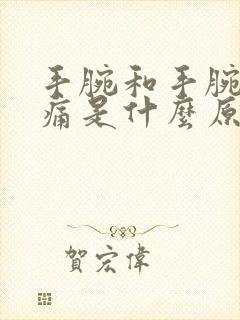 手腕和手腕
痛是什麼原
賀宏偉